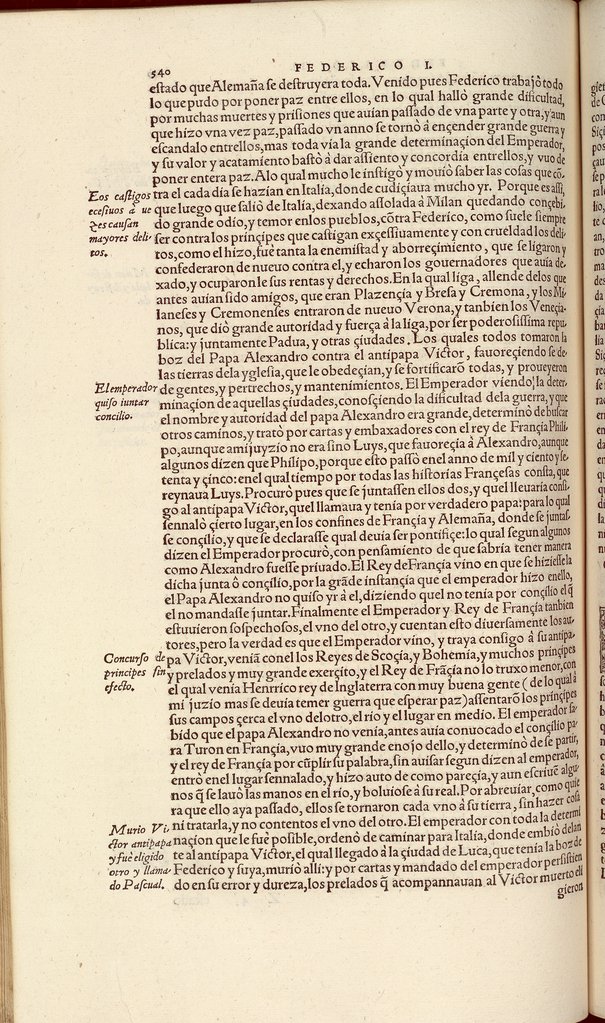 540
FEDERICO I.
estado que Alemaña se destruyera toda. Venido pues Federico trabajò todo
lo que pudo por poner paz entre ellos, en lo qual hallò grande dificultad,
por muchas muertes y prisiones que auían passado de vna parte y otra, y aun
que hizo vna vez paz, passado vn anno se tornò à ençender grande guerra y
escandalo entrellos, mas toda vía la grande determinaçion del Emperador,
y su valor y acatamiento bastò à dar assiento y concordia entrellos, y vuo de
poner entera paz. A lo qual mucho le instigò y mouiò saber las cosas que cō
tra el cada día se hazían en Italia, donde cudiçiaua mucho yr. Porque es assi,
que luego que saliò de Italia, dexando assolada à Milan quedando conçebi
do grande odio, y temor en los pueblos, cōtra Federico, como suele siempre
ser contra los prinçipes que castigan exçessiuamente y con crueldad los deli
tos, como el hizo, fue tanta la enemistad y aborreçimiento, que se ligaron y
confederaron de nueuo contra el, y echaron los gouernadores que auia de-
xado, y ocuparon le sus rentas y derechos. En la qual liga, allende delos que
antes auian sido amigos, que eran Plazençia y Bresa y Cremona, y los Mi-
laneses y Cremonenses entraron de nueuo Verona, y tanbien los Veneçia-
nos, que diò grande autoridad y fuerça à la liga, por ser poderosissima repu-
blica: y juntamente Padua, y otras çiudades. Los quales todos tomaron la
boz del Papa Alexandro contra el antipapa Victor, fauoreçiendo se de-
las tierras dela yglesia, que le obedeçian, y se fortificarō todas, y proueyeron
de gentes, y pertrechos, y mantenimientos. El Emperador viendo la deter-
minaçion de aquellas çiudades, conosçiendo la dificultad dela guerra, y que
el nombre y autoridad del papa Alexandro era grande, determinò de buscar
otros caminos, y tratò por cartas y embaxadores con el rey de Françia Phili-
po, aunque a mi juyzio no era sino Luys, que fauoreçia à Alexandro, aunque
algunos dizen que Philipo, porque esto passò enel anno de mil y ciento y se-
tenta y çinco: enel qual tiempo por todas las historias Françesas consta, que
reynaua Luys. Procurò pues que se juntassen ellos dos, y quel lleuaria consi-
go al antipapa Victor, quel llamaua y tenia por verdadero papa: para lo qual
sennalò çierto lugar, en los confines de Françia y Alemaña, donde se juntas-
se conçilio, y que se declarasse qual deuia ser pontifiçe: lo qual segun algunos
dizen el Emperador procurò, con pensamiento de que sabria tener manera
como Alexandro fuesse priuado. El Rey de Françia vino en que se hiziesse la
dicha junta ò conçilio, por la grāde instançia que el emperador hizo enello,
el Papa Alexandro no quiso yr à el, diziendo quel no tenia por conçilio el q̄
el no mandasse juntar. Finalmente el Emperador y Rey de Françia tanbien
estuuieron sospechosos, el vno del otro, y cuentan esto diuersamente los au-
tores, pero la verdad es que el Emperador vino, y traya consigo à su antipa-
pa Victor, veniā con el los Reyes de Scoçia, y Bohemia, y muchos prinçipes
y prelados y muy grande exerçito, y el Rey de Frāçia no lo truxo menor, con
el qual venia Henrrico rey de Inglaterra con muy buena gente (de lo qual à
mi juzio mas se deuia temer guerra que esperar paz) assentarō los prinçipes
sus campos çerca el vno delotro, el rio y el lugar en medio. El emperador sa-
bido que el papa Alexandro no venia, antes auia conuocado el conçilio pa-
ra Turon en Françia, vuo muy grande enojo dello, y determinò de se partir,
y el rey de Françia por cūplir su palabra, sin auisar segun dizen al emperador,
entrò enel lugar sennalado, y hizo auto de como pareçia, y aun escriuē algu-
nos q̄ se lauò las manos en el rio, y boluiose à su real. Por abreuiar, como quie
ra que ello aya passado, ellos se tornaron cada vno à su tierra, sin hazer cosa
ni tratarla, y no contentos el vno del otro. El emperador con toda la determi
naçion que le fue posible, ordenò de caminar para Italia, donde embiò delan
te al antipapa Victor, el qual llegado à la çiudad de Luca, que tenia la boz de
Federico y suya, muriò alli: y por cartas y mandado del emperador persistien
do en su error y dureza, los prelados q̄ acompannauan al Victor muerto eli
gieron
Eos castigos
ecesiuos à ue
zes causan
mayores deli-
tos.
El emperador
quiso iuntar
concilio.
Concurso de
principes sin
efecto.
Murio Vi-
ctor antipapa
y fue eligido
otro y llama-
do Pascual.